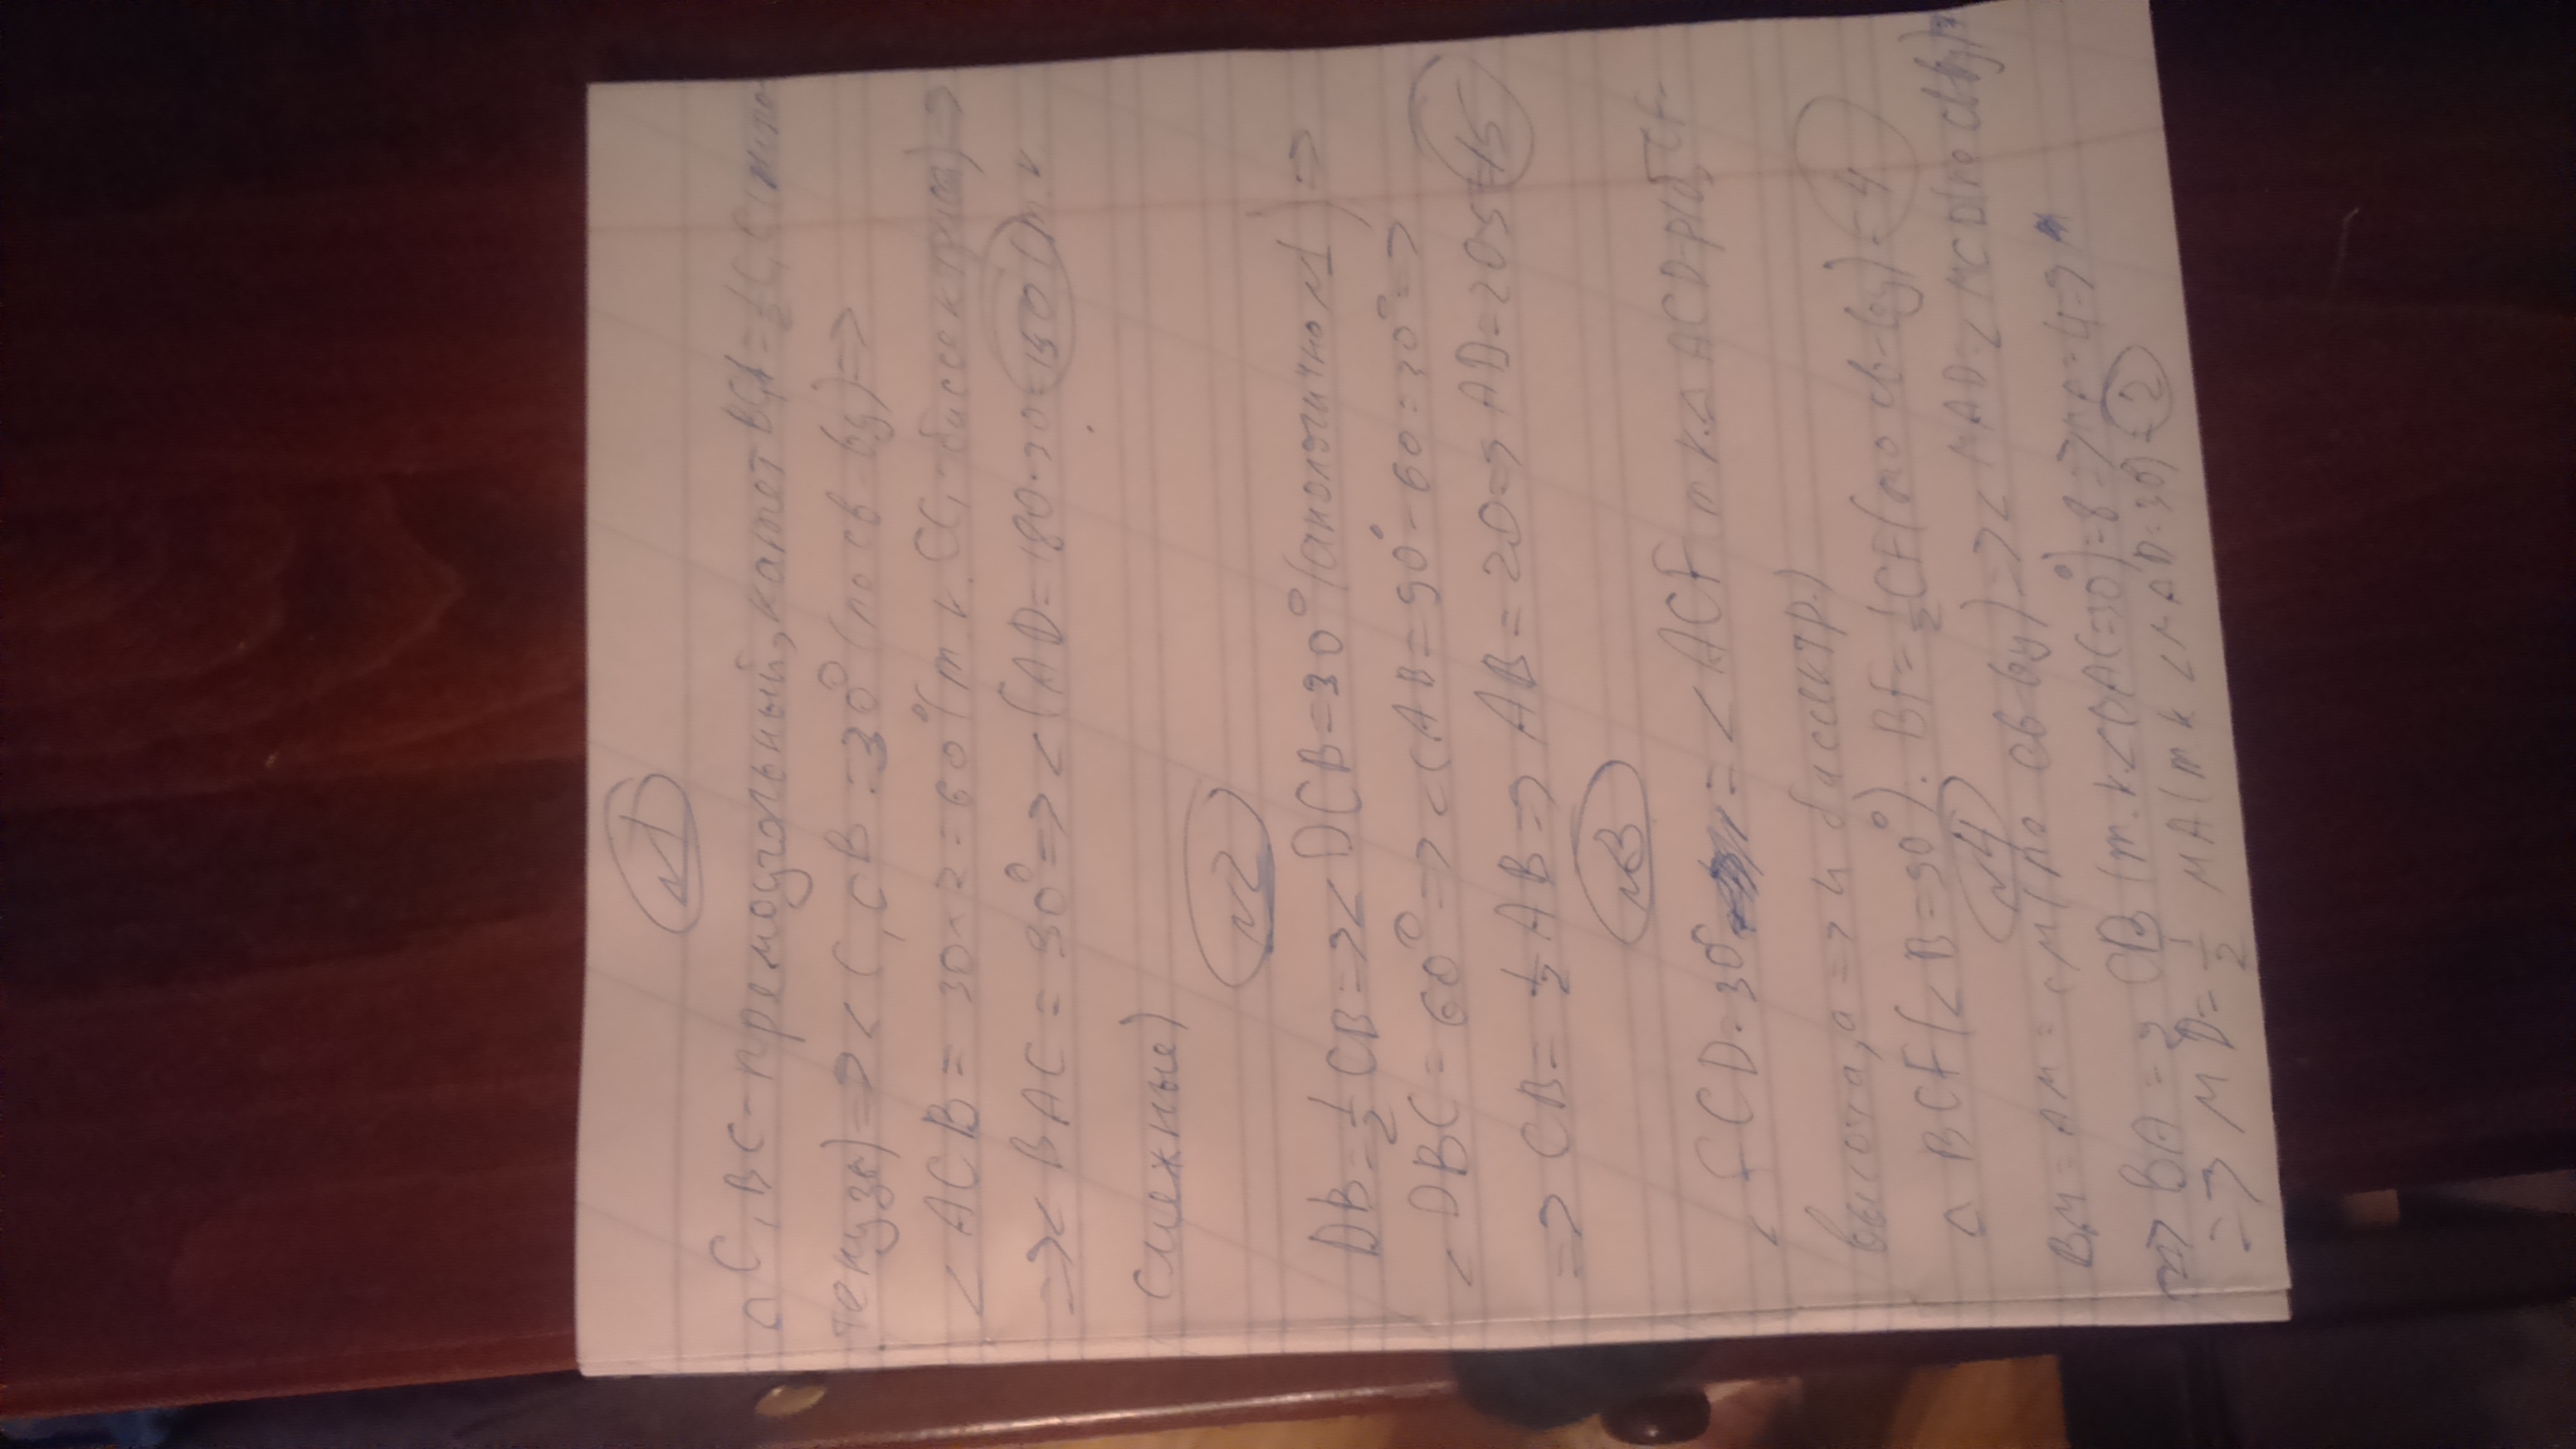 №1
△ C₁BC - премоугольный, катет BC₁ = ½ C₁C (гипо-
тенуза) => < C₁CB = 30° (по св-ву) =>
< ACB = 30 × 2 = 60° (т.к. CC₁ - биссектриса) =>
=> < BAC = 30° => < CAD = 180 - 30 = 150 (т.к
смежные)
№2
DB = ½ CB => < DCB = 30° (анологично №1) =>
< DBC = 60° => < CAB = 90° - 60 = 30° =>
=> CB = ½ AB => AB = 20 => AD = 20 - 5 = 15
№3
< FCD = 30° = < ACF т к △ ACD р/б, CF -
высота, а => и биссектр.)
△ BCF (< B = 90°). BF = ½ CF (по св-ву) = 4
№4
BM = AM = CM (по св-ву) => < MAD = < MCD (по св-ву) =
=> BA = CB (т.к. < BAC = 30°) = 8 => MA = 4 =>
=> MD = ½ MA (т к < MAD = 30) = 2